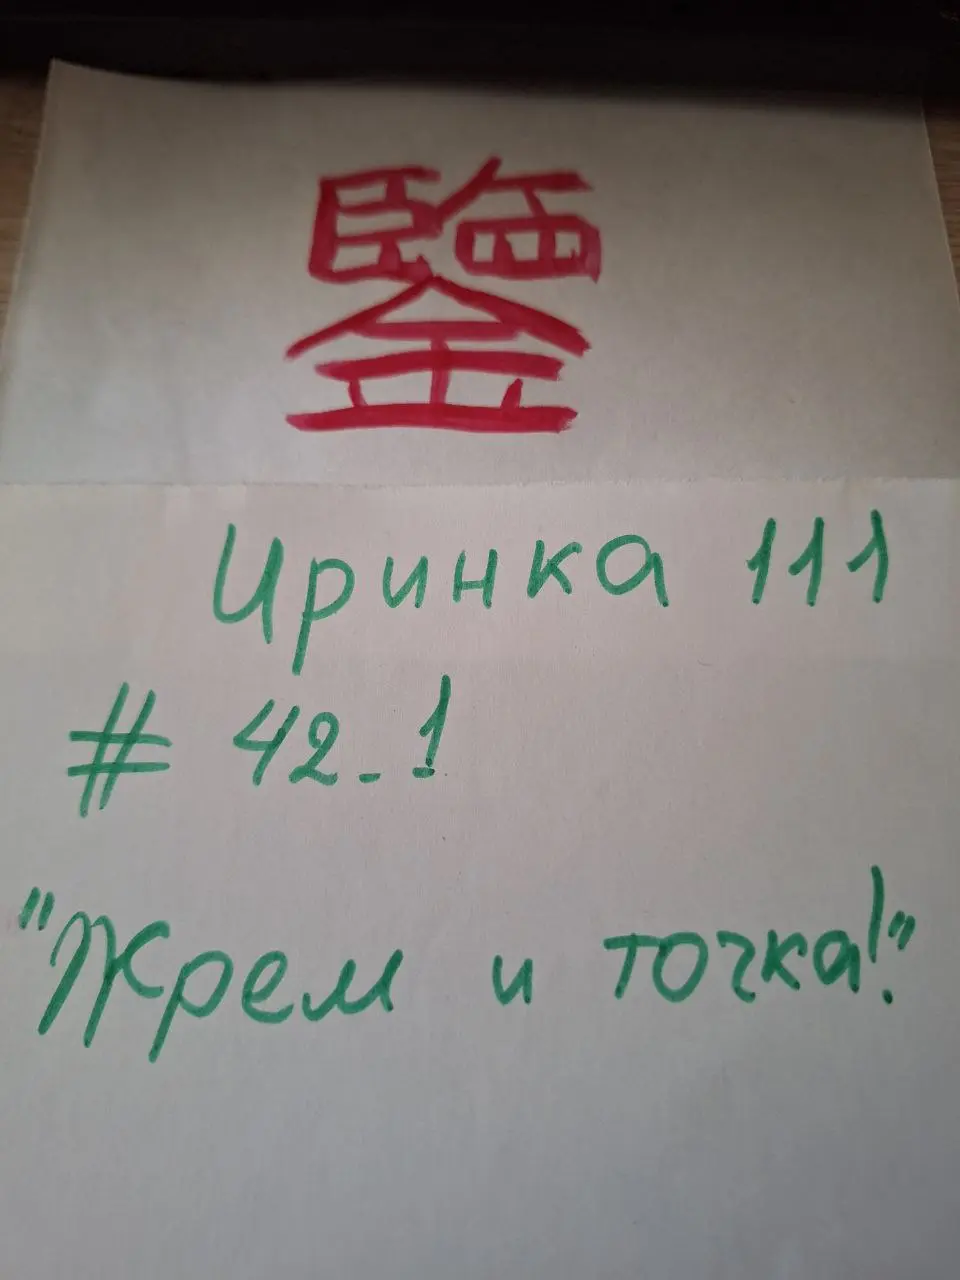 鑒
Иринка 111
# 42_1
"Жрем и точка!"